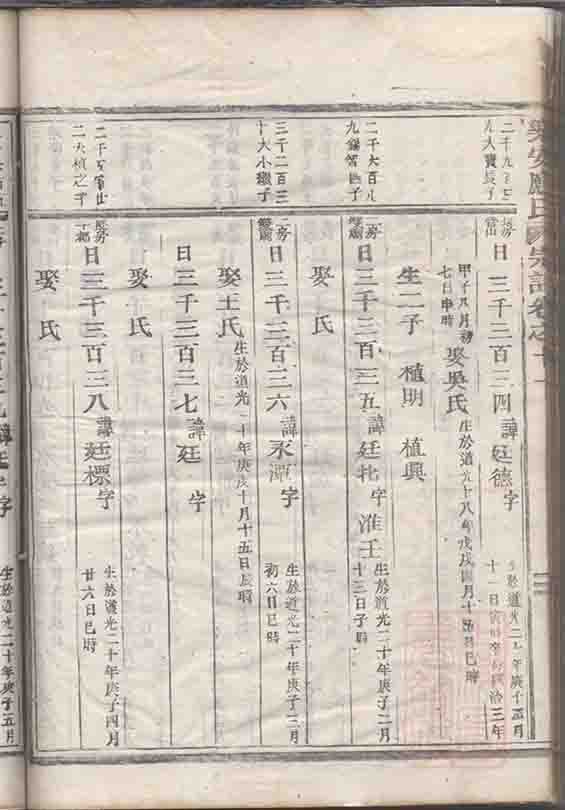 樂安 氏 宗譜卷之十一
二千九百七
九大寶長子
日三千三百三四諱廷德字
生於道光二十年庚子正月
十一日寅時卒 同治三年
甲子八月初
七日申時
娶吳氏
生於道光十八年戊戌四月十 日巳時
生二子 植明 植興
二千六百八
九錫 長子
二房
日三千三百三五諱廷 字淮 
生於道光二十年庚子二月
十三日子時
娶氏
三千二百三
十大小 子
二房
日三千三百三六諱永潭字
生於道光二十年庚子三月
初六日巳時
娶王氏
生於道光 十年庚戌十月十五日辰時
日三千三百三七諱廷 字
娶氏
二千
二大 之子
日三千三百三八諱廷標字
生於道光二十年庚子四月
廿六日巳時
娶氏
生於道光二十年庚子五月